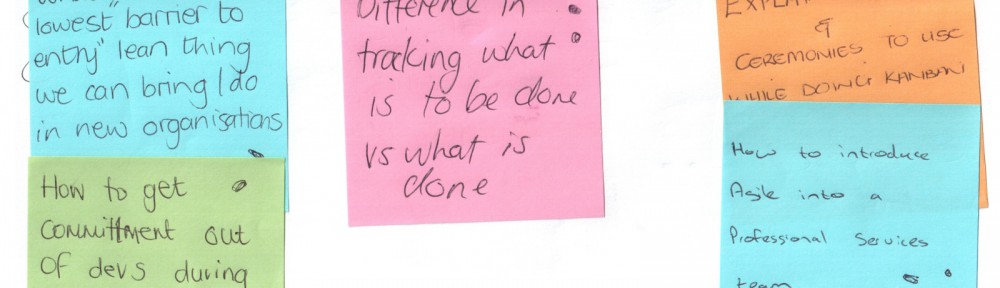 lowest" barrier to
entry" lean thing
we can bring/do
in new organisations
How to get
committment out
of devs during
Difference in
tracking what
is to be done
vs what is
done
&
CEREMONIES TO USE
WHILE DOING KANBAN
How to introduce
Agile into a
Professional Services
team